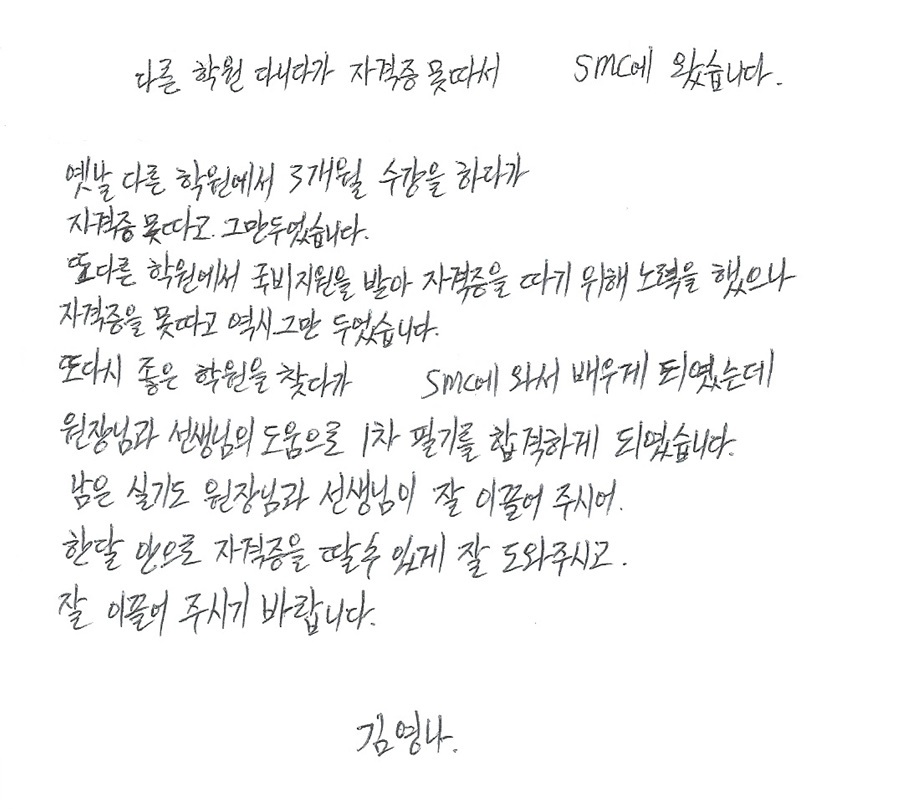 다른 학원 다니다가 자격증 못따서 SMC에 왔습니다.
옛날 다른 학원에서 3개월 수강을 하다가
자격증 못따고. 그만두었습니다.
또다른 학원에서 국비지원을 받아 자격증을 따기 위해 노력을 했으나
자격증을 못따고 역시그만 두었습니다.
또다시 좋은 학원을 찾다가 SMC에 와서 배우게 되였는데
원장님과 선생님의 도움으로 1차 필기를 합격하게 되였습니다.
남은 실기도 원장님과 선생님이 잘 이끌어 주시어.
한달 안으로 자격증을 딸수 있게 잘 도와주시고.
잘 이끌어 주시기 바랍니다.
김영나.